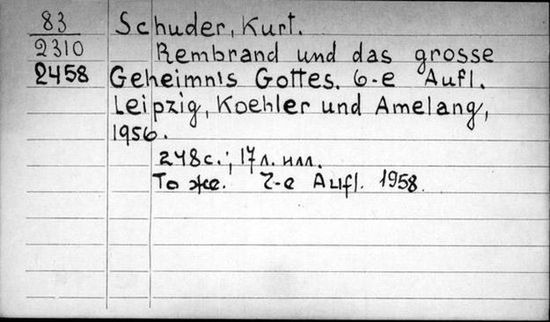 83 Schuder, Kurt.
2310 Rembrand und das grosse
2458 Geheimnis Gottes. 6-e Aufl.
Leipzig, Koehler und Amelang,
1956.
248с.; 17л. илл.
То же. 7-e Aufl. 1958.